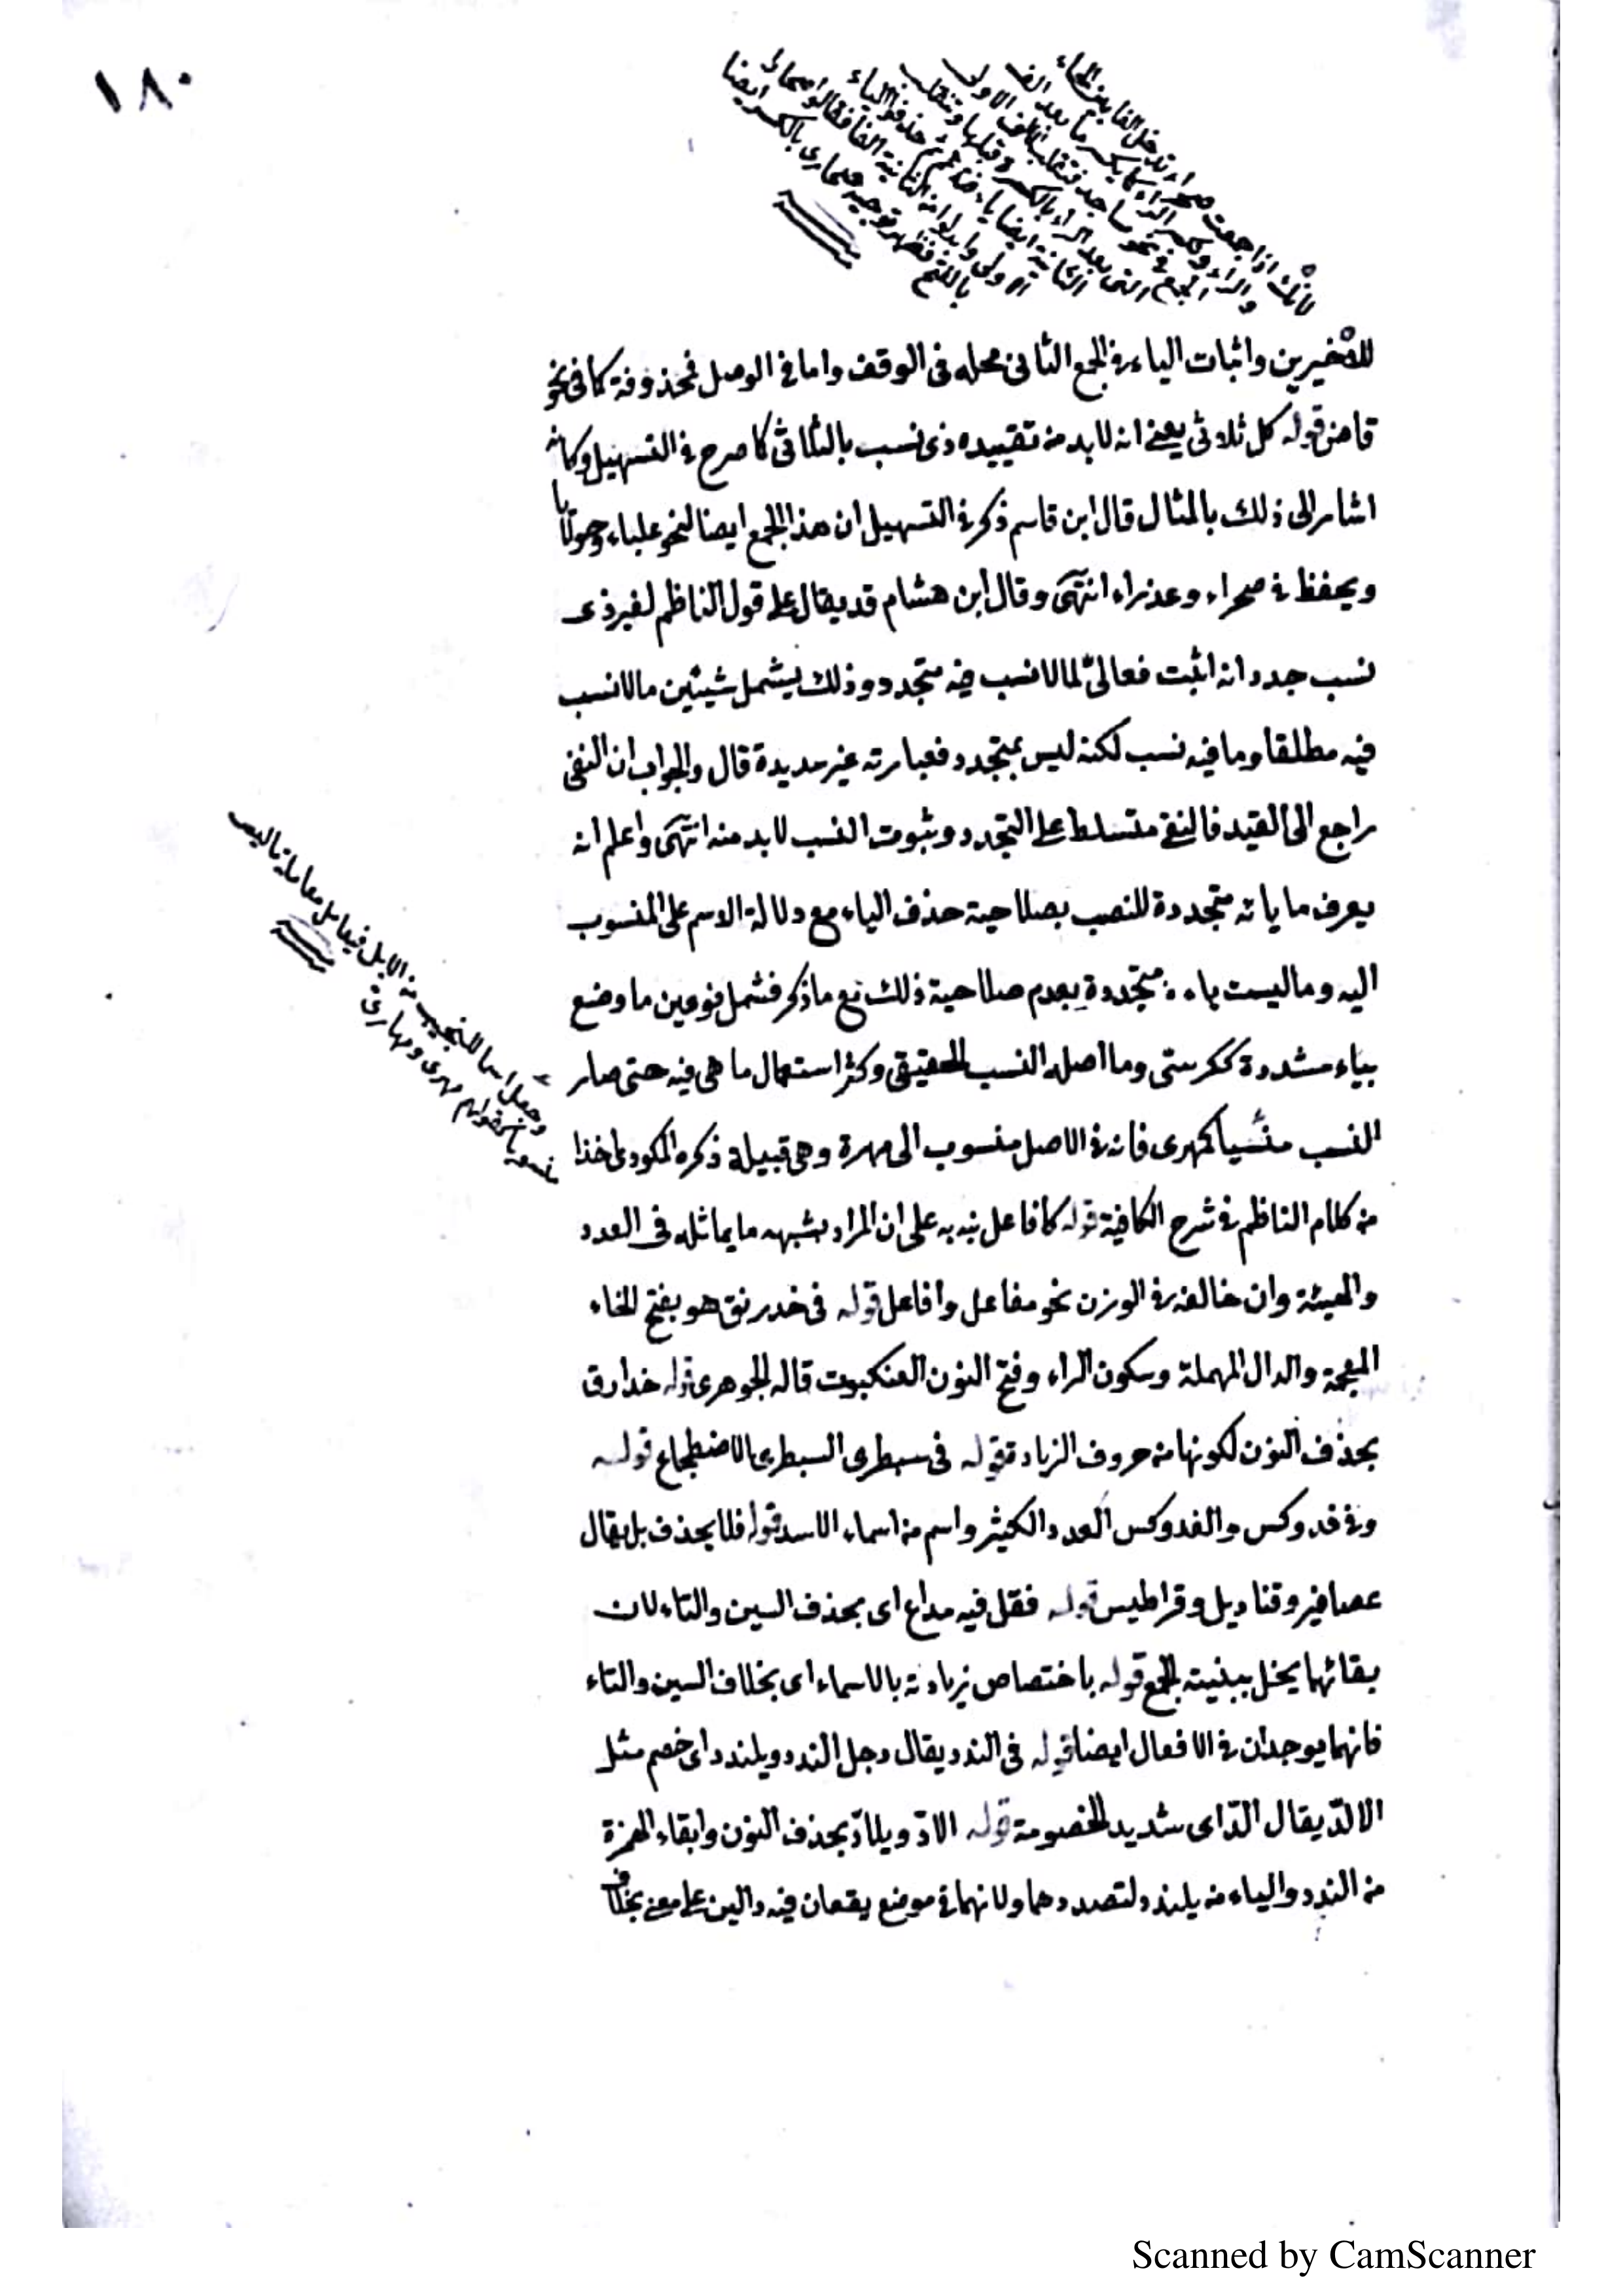 ١٨٠
لانك اذا جمعت صحراء تدخل الفا بين الحاء
والراء وتكسر الراء كما يكسر ما بعد الف
الجمع في نحو مساجد فتقلب الالف الاولى
التي بعد الراء بالكسرة قبلها وتنقلب
الثانية ايضا ياء ثم حذفوا الياء
الاولى وابدلوا من الثانية الفا فقالوا صحارى
بالفتح فظهر توجيه صحارى بالكسر ايضا
للاخيرين واثبات الياء في الجمع الثاني محله في الوقف واما في الوصل فمحذوفة كما في نحو
قاض قوله كل ثلاثي يعني انه لا بد من تقييده ذي نسب بالثلاثي كما صرح في التسهيل وكانه
اشار الى ذلك بالمثال قال ابن قاسم ذكر في التسهيل ان هذا الجمع ايضا لنحو علباء وحولايا
ويحفظ في صحراء وعذراء انتهى وقال ابن هشام قد يقال على قول الناظم لغير ذي
نسب جدد انه اثبت فعاليّ لما لا نسب فيه متجدد وذلك يشمل شيئين ما لا نسب
فيه مطلقا وما فيه نسب لكنه ليس بمتجدد فعبارته غير سديدة قال والجواب ان النفي
راجع الى القيد فالنفي متسلط على التجدد وثبوت النسب لا بد منه انتهى واعلم انه
يعرف ما ياؤه متجددة للنسب بصلاحية حذف الياء مع دلالة الاسم على المنسوب
اليه وما ليست ياءه متجددة بعدم صلاحية ذلك مع ما ذكر فشمل نوعين ما وضع
بياء مشددة ككرسي وما اصله النسب الحقيقي وكثر استعمال ما هي فيه حتى صار
النسب منسيا كمهرى فانه في الاصل منسوب الى مهرة وهي قبيلة ذكره المكودي اخذا
من كلام الناظم في شرح الكافية قوله كافاعل نبه به على ان المراد بشبهه ما يماثله في العدد
والهيئة وان خالفه في الوزن نحو مفاعل وافاعل قوله في خدرنق هو بفتح الخاء
المعجمة والدال المهملة وسكون الراء وفتح النون العنكبوت قاله الجوهري قوله خدارق
بحذف النون لكونها من حروف الزيادة قوله في سبطرى السبطرى الاضطجاع قوله
وفي فدوكس والفدوكس العدد الكثير واسم من اسماء الاسد قوله فلا يحذف بل يقال
عصافير وقناديل وقراطيس قوله فقل فيه مداع اى بحذف السين والتاء لان
بقائهما يخل ببنية الجمع قوله باختصاص زيادته بالاسماء اى بخلاف السين والتاء
فانهما يوجدان في الافعال ايضا قوله في الندد يقال رجل الندد ويلندد اى خصم مثل
الالدّ يقال الدّ اى شديد الخصومة قوله الادّ ويلادّ بحذف النون وابقاء الهمزة
من الندد والياء من يلندد لتصددهما ولانهما في موضع يقعان فيه دالين على معنى بخلاف
وجعل اسما للنجيب من الابل فيعامل معاملة ما ليس
منسوبا فقولهم مهرى ومهارى
Scanned by CamScanner